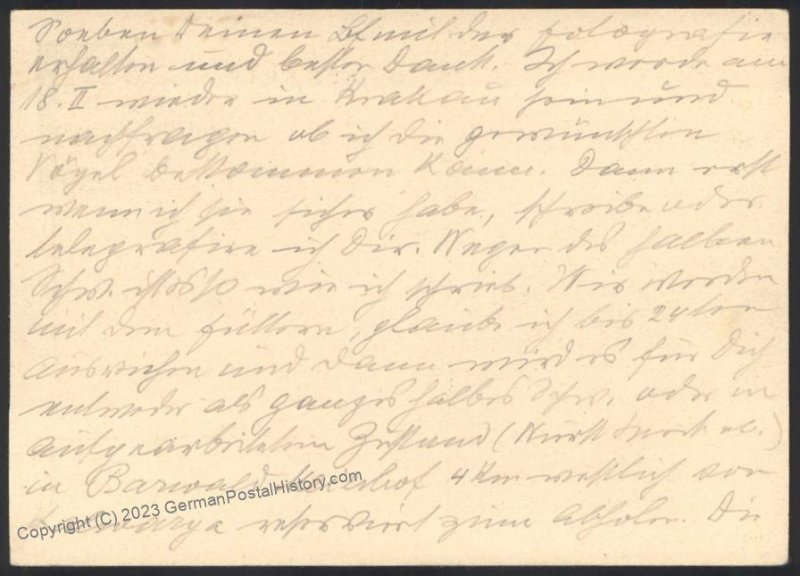 Soeben Deinen Bf mit der Fotografie
erhalten und besten Dank. Ich werde am
18. II wieder in Krakau sein und
nachfragen ob ich die gewünschten
Vögel bekommen kann. Dann erst
wenn ich sie sicher habe, schreibe oder
telegrafire ich Dir. Wegen des halben
Schw. ist es so wie ich schrieb. Wir werden
mit dem füttern, glaube ich bis 24ten
ausreichen und dann wird es für Dich
entweder als ganzes halbes Schw. oder in
aufgearbeitetem Zustand (Wurst Speck etc.)
in Barwald 4 Km westlich von
Kalwarya reserviert zum abholen. Die
Copyright (C) 2023 GermanPostalHistory.com